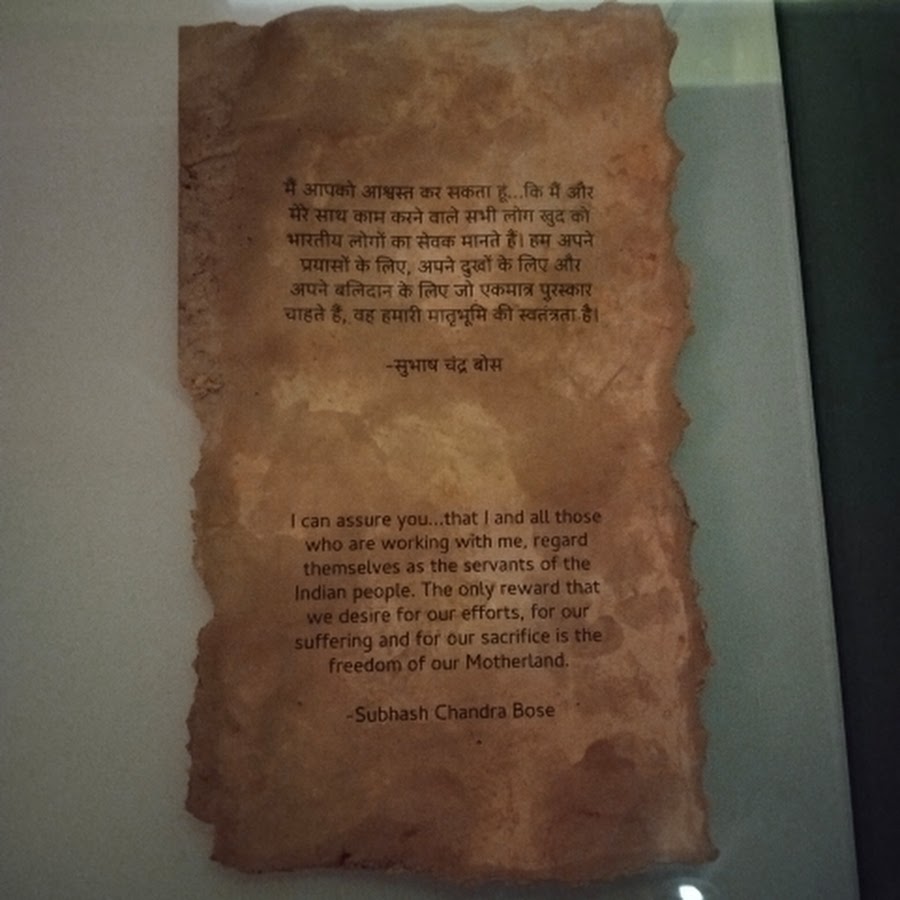 मैं आपको आश्वस्त कर सकता हूं...कि मैं और
मेरे साथ काम करने वाले सभी लोग खुद को
भारतीय लोगों का सेवक मानते हैं। हम अपने
प्रयासों के लिए, अपने दुखों के लिए और
अपने बलिदान के लिए जो एकमात्र पुरस्कार
चाहते हैं, वह हमारी मातृभूमि की स्वतंत्रता है।
-सुभाष चंद्र बोस
I can assure you...that I and all those
who are working with me, regard
themselves as the servants of the
Indian people. The only reward that
we desire for our efforts, for our
suffering and for our sacrifice is the
freedom of our Motherland.
-Subhash Chandra Bose